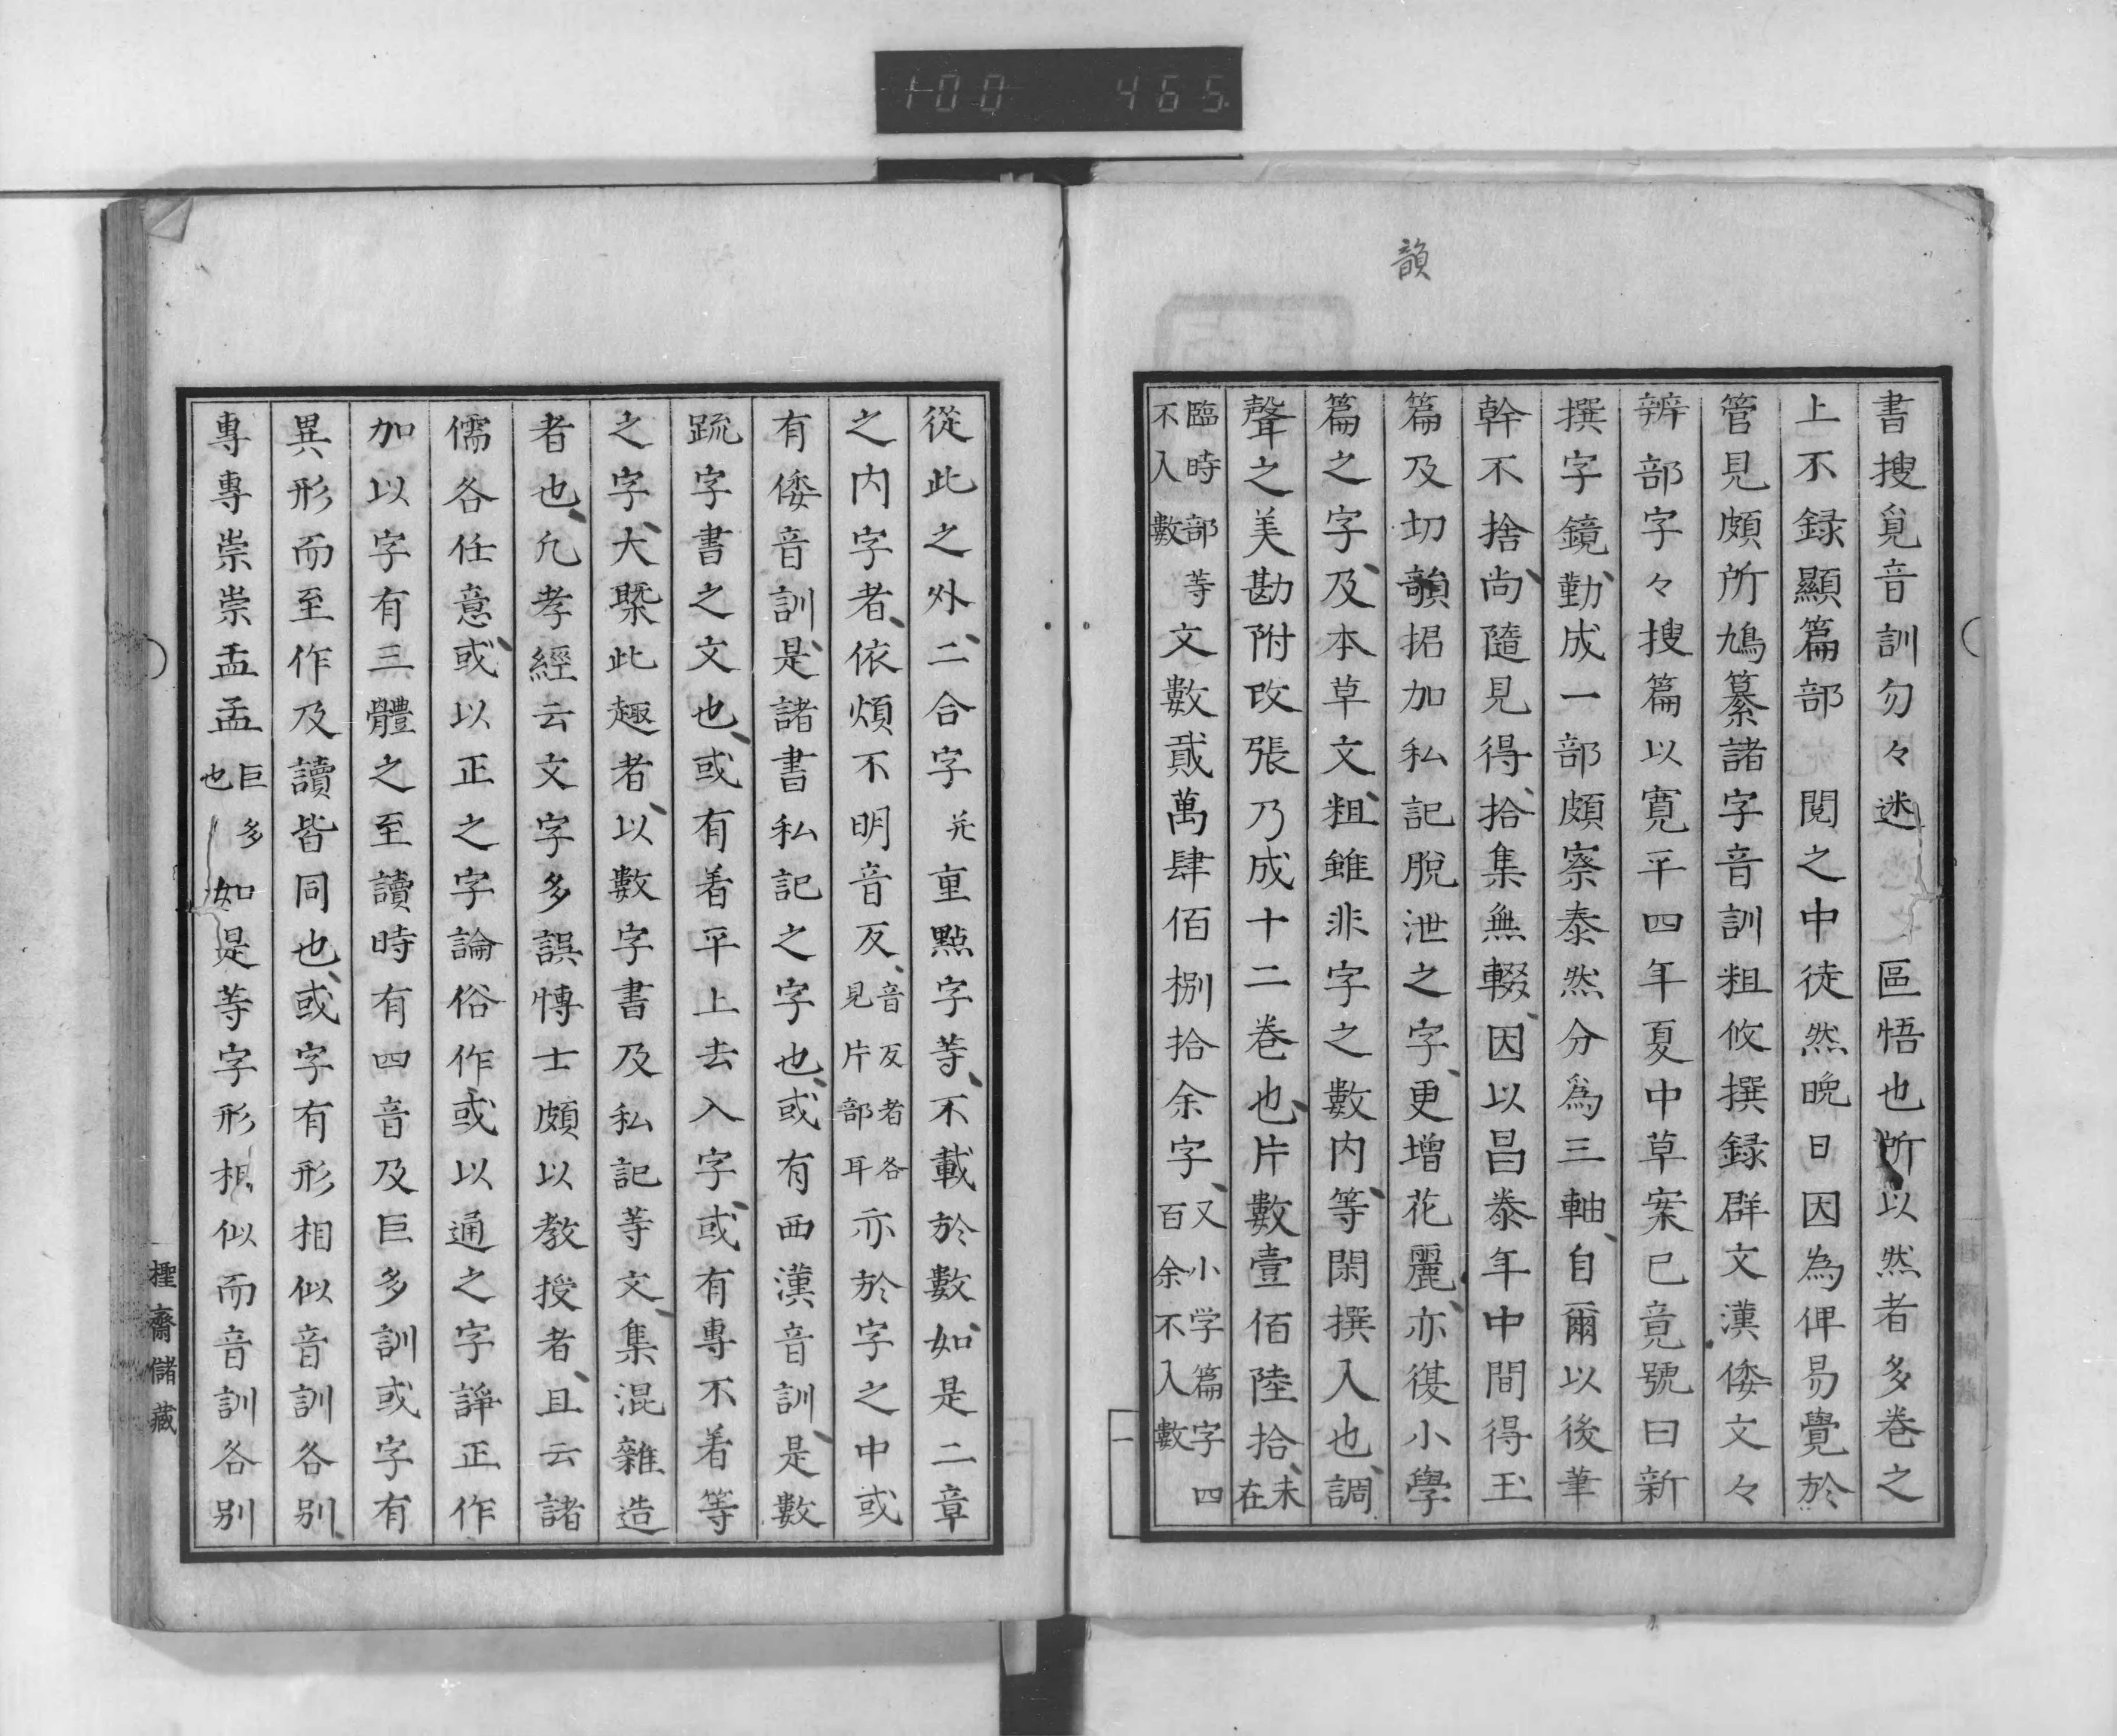 100 465
韻
書搜覓音訓勿々迷 區悟也所以然者多卷之
上不録顯篇部 閱之中徒然晚日因為俾易覺於
管見頗所鳩纂諸字音訓粗攸撰録群文漢倭文々
辨部字々搜篇以寛平四年夏中草案已竟號曰新
撰字鏡勤成一部頗察泰然分爲三軸自爾以後筆
幹不捨尚隨見得拾集無輟因以昌泰年中間得玉
篇及切韻捃加私記脫泄之字更增花麗亦復小學
篇之字及本草文粗雖非字之數内等閑撰入也調
聲之美勘附改張乃成十二卷也片數壹佰陸拾末在
臨時部等不入數文數貮萬肆佰捌拾余字又小学篇字四百余不入數
一
從此之外二合字并重點字等不載於數如是二章
之内字者依煩不明音反音反者各見片部耳亦於字之中或
有倭音訓是諸書私記之字也或有西漢音訓是數
疏字書之文也或有着平上去入字或有專不着等
之字大槩此趣者以數字書及私記等文集混雜造
者也凢孝經云文字多誤愽士頗以教授者且云諸
儒各任意或以正之字論俗作或以通之字諍正作
加以字有三體之至讀時有四音及巨多訓或字有
異形而至作及讀皆同也或字有形相似音訓各別
專專崇祟盂孟巨多也如是等字形相似而音訓各別
齋儲藏